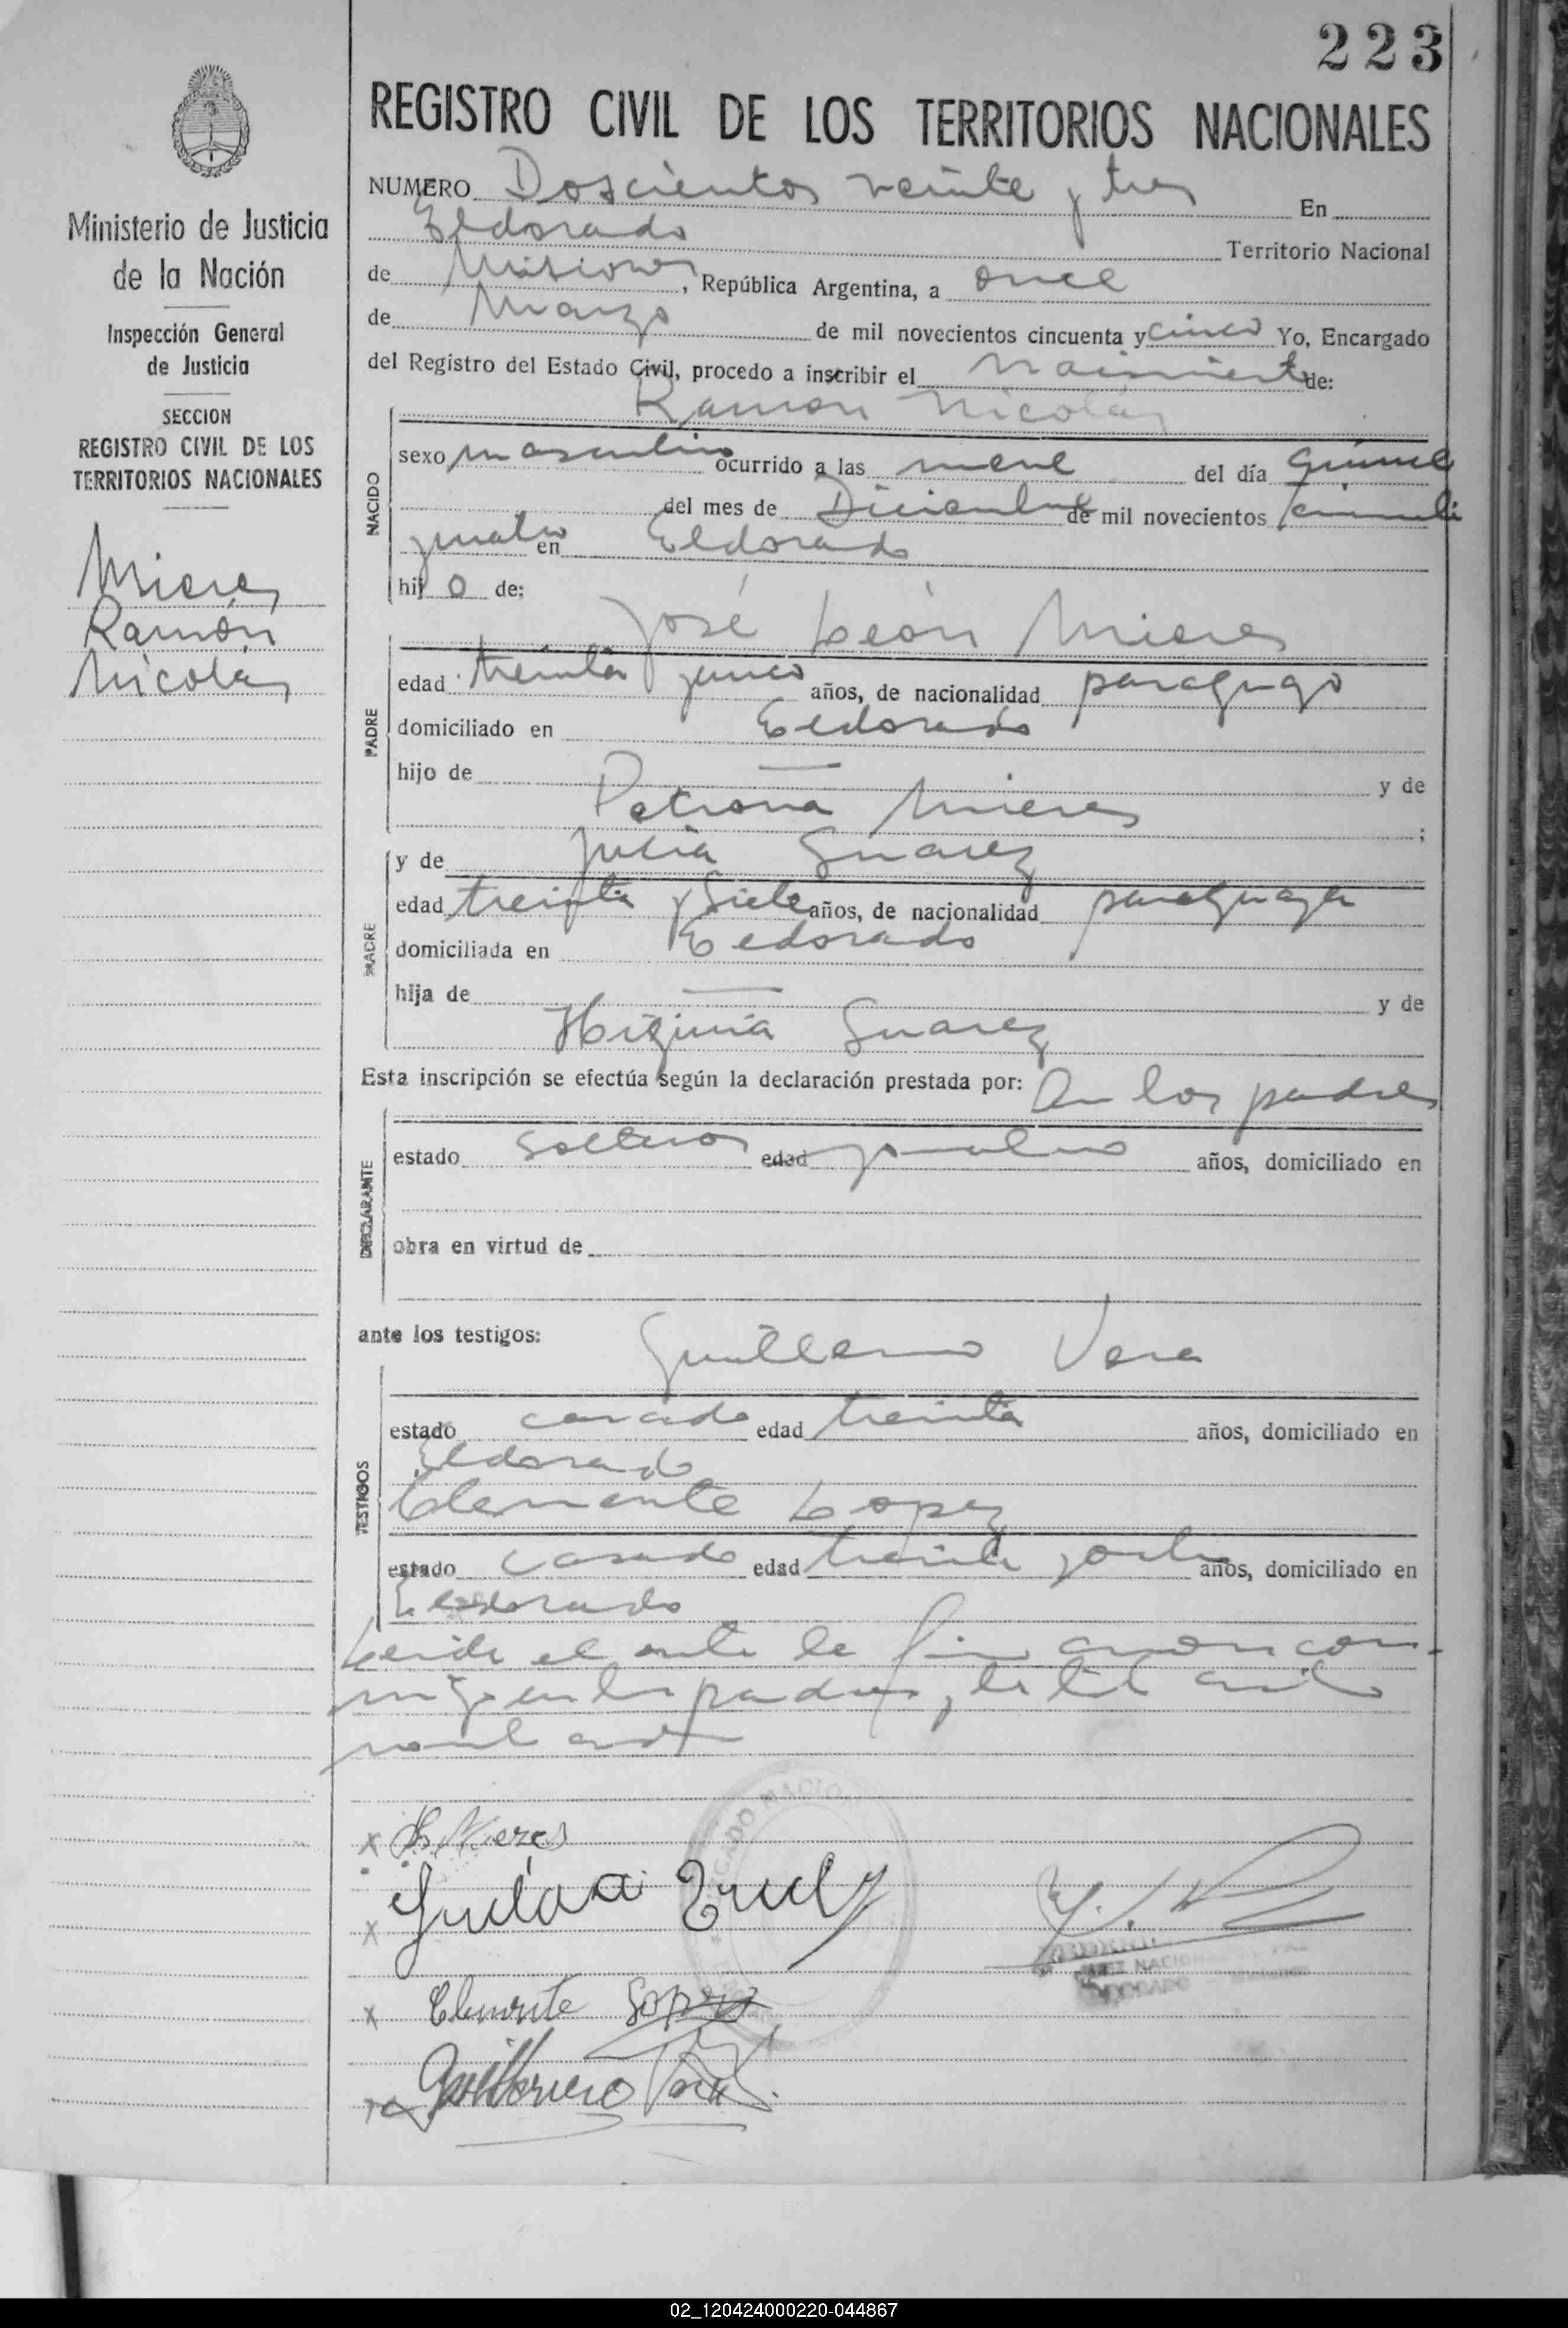 223
REGISTRO CIVIL DE LOS TERRITORIOS NACIONALES
Ministerio de Justicia
de la Nación
Inspección General
de Justicia
SECCION
REGISTRO CIVIL DE LOS
TERRITORIOS NACIONALES
Mieres
Ramón
Nicolás
NUMERO Doscientos veinte y tres En
Eldorado Territorio Nacional
de Misiones, República Argentina, a once
de Marzo de mil novecientos cincuenta y cinco Yo, Encargado
del Registro del Estado Civil, procedo a inscribir el nacimiento de:
Ramon Nicolás
NACIDO
sexo masculino ocurrido a las nueve del día quince
del mes de Diciembre de mil novecientos cincuenta
y cuatro en Eldorado
hijo de:
José León Mieres
PADRE
edad treinta y cinco años, de nacionalidad paraguayo
domiciliado en Eldorado
hijo de — y de
Petrona Mieres ;
y de Julia Suarez
MADRE
edad treinta y siete años, de nacionalidad paraguaya
domiciliada en Eldorado
hija de — y de
Higinia Suarez
Esta inscripción se efectúa según la declaración prestada por: los padres
DECLARANTE
estado solteros edad años, domiciliado en
obra en virtud de
ante los testigos: Guillermo Vera
TESTIGOS
estado casado edad treinta años, domiciliado en
Eldorado
Clemente Lopez
estado casado edad treinta y ocho años, domiciliado en
Eldorado
Leida el acta la firmaron con-
migo los padres y testigos
x Mieres
x
x Clemente Lopez
x Guillermo Vera
JUEZ NACIONAL DE PAZ
ELDORADO
02_120424000220-044867